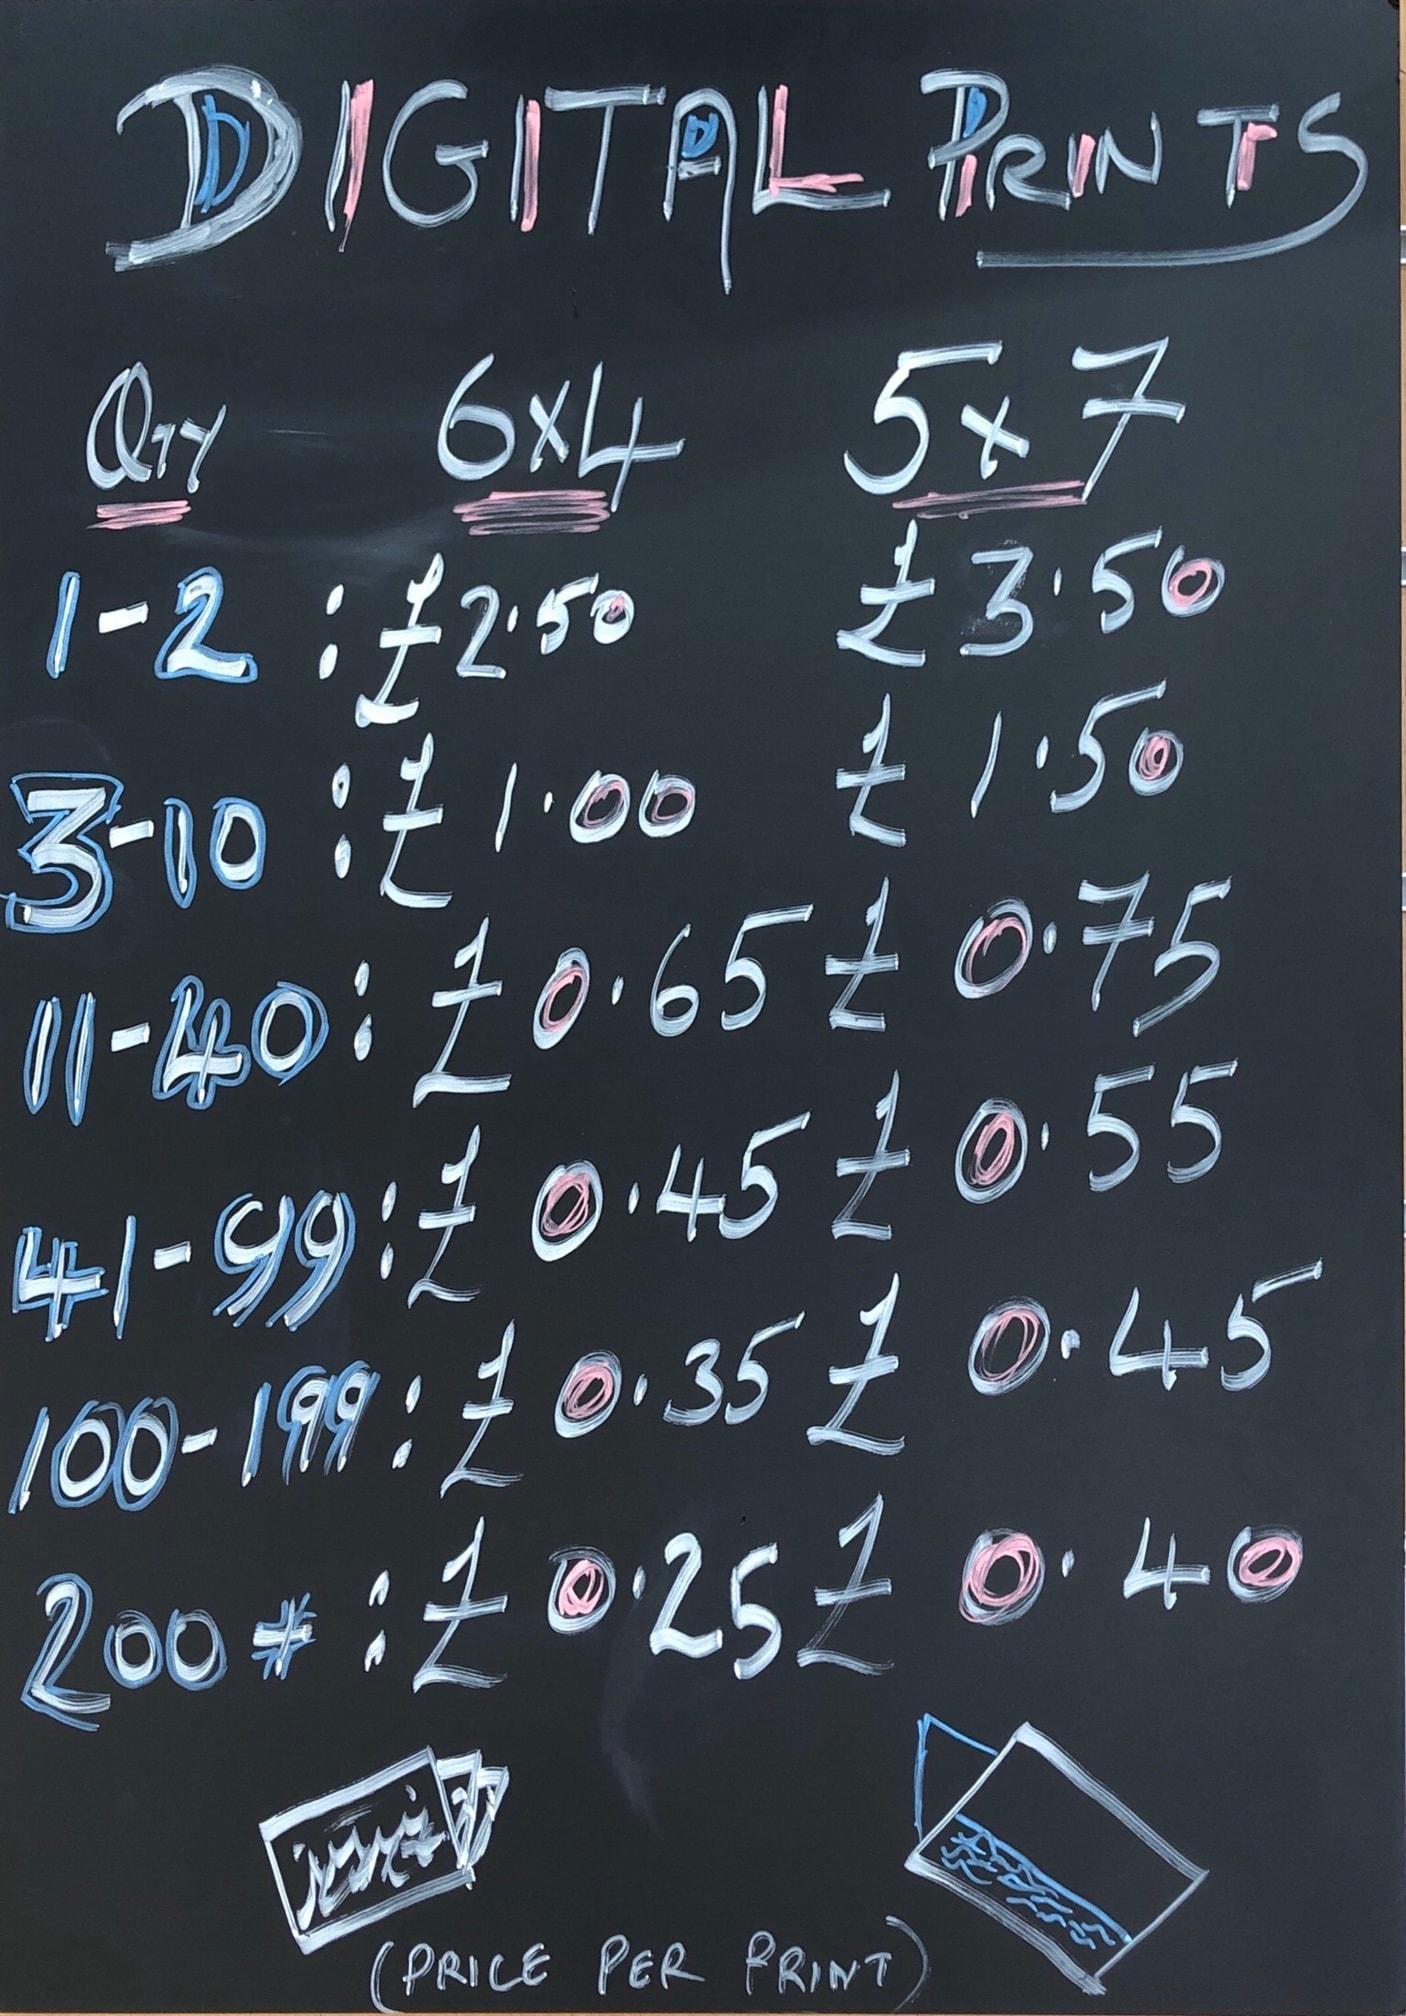 DIGITAL PRINTS
QTY 6x4 5x7
1-2 : £2.50 £3.50
3-10 : £1.00 £1.50
11-40 : £0.65 £0.75
41-99 : £0.45 £0.55
100-199 : £0.35 £0.45
200+ : £0.25 £0.40
(PRICE PER PRINT)